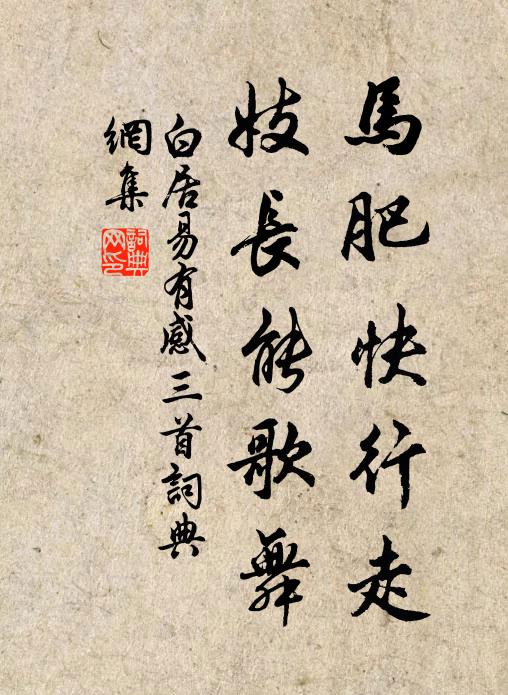 馬肥快行走
妓長能歌舞
白居易有感三首詞典
網集
詞典
网印